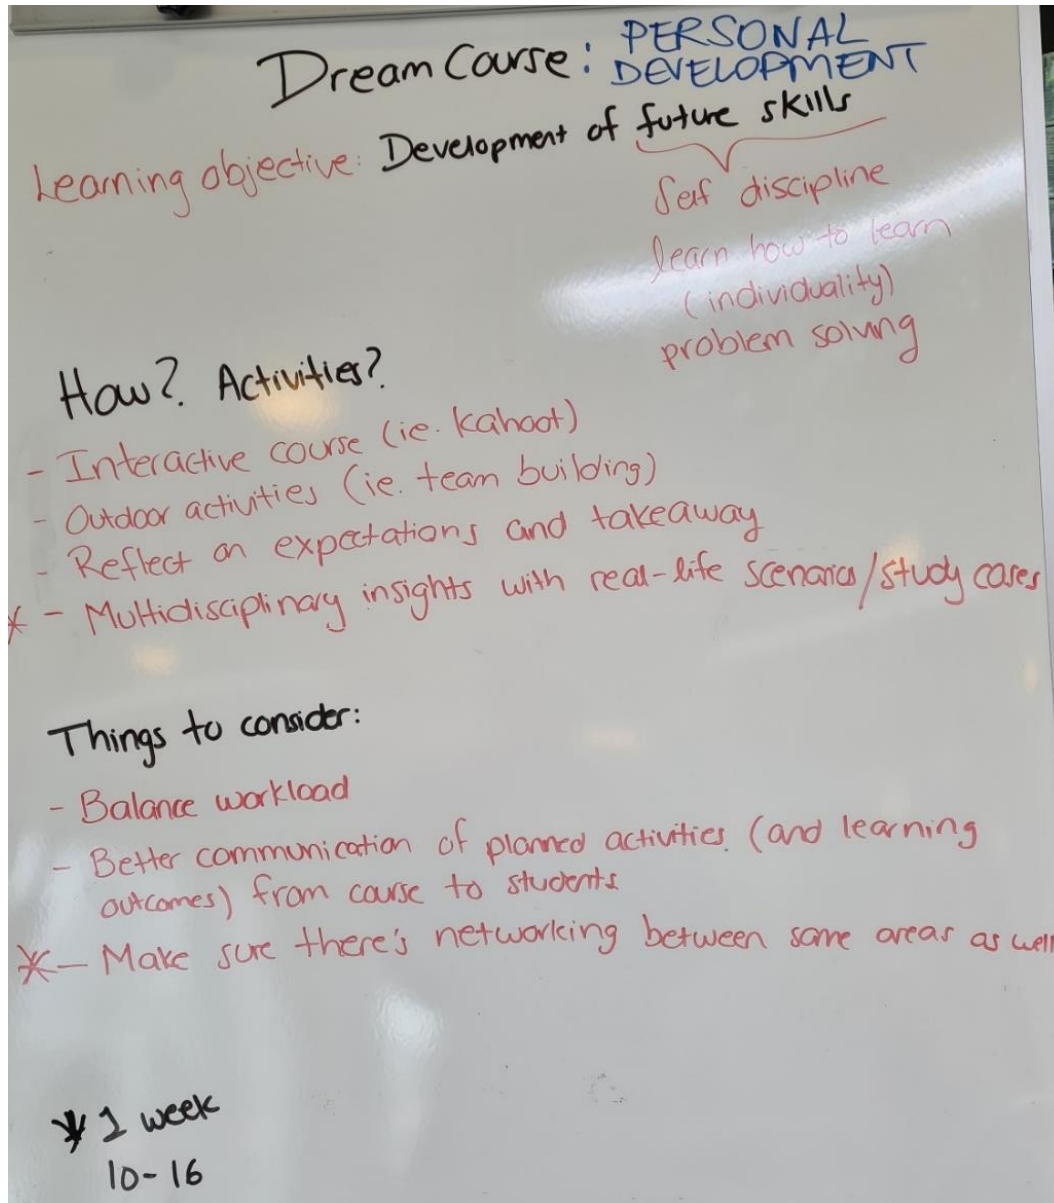 Dream Course: PERSONAL
DEVELOPMENT
Learning objective: Development of future skills
Self discipline
learn how to learn
(individuality)
problem solving
How? Activities?
- Interactive course (ie. kahoot)
- Outdoor activities (ie. team building)
- Reflect on expectations and takeaway
* - Multidisciplinary insights with real-life scenarios/study cases
Things to consider:
- Balance workload
- Better communication of planned activities (and learning
outcomes) from course to students
* - Make sure there's networking between same areas as well
* 1 week
10-16